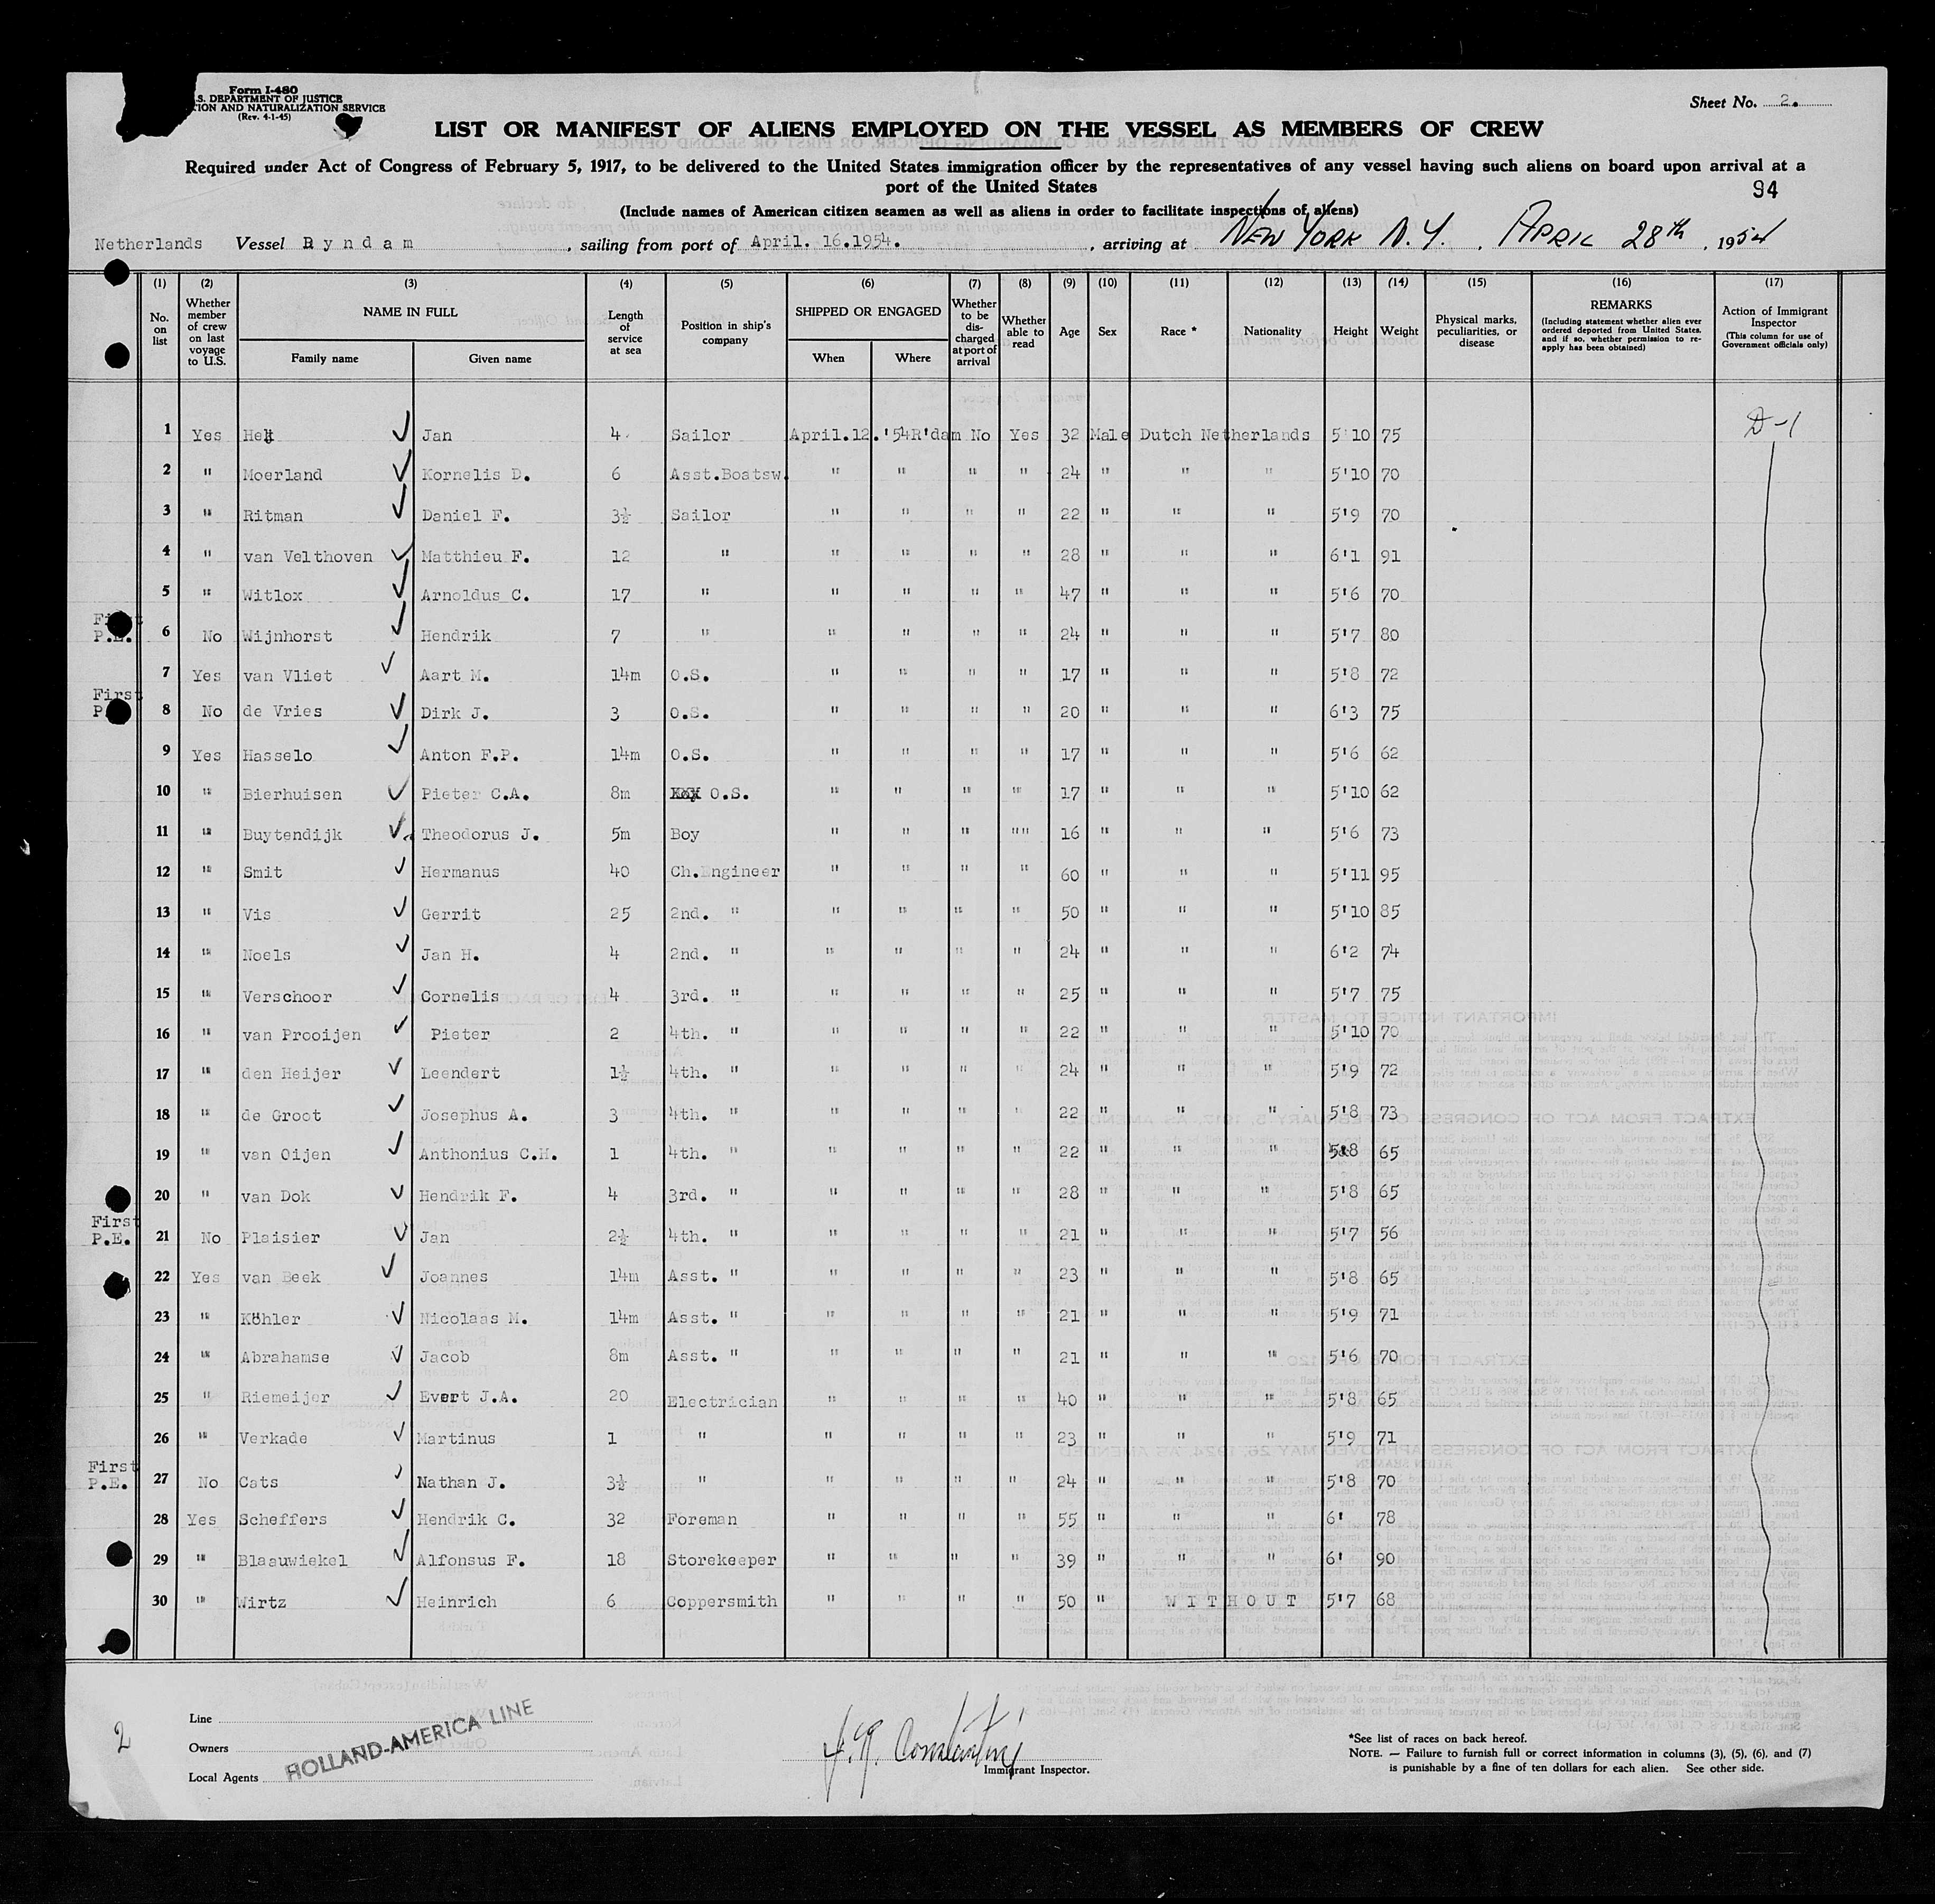 Form I-480
S. DEPARTMENT OF JUSTICE
TION AND NATURALIZATION SERVICE
(Rev. 4-1-45)
Sheet No. 2.
LIST OR MANIFEST OF ALIENS EMPLOYED ON THE VESSEL AS MEMBERS OF CREW
Required under Act of Congress of February 5, 1917, to be delivered to the United States immigration officer by the representatives of any vessel having such aliens on board upon arrival at a
port of the United States
94
(Include names of American citizen seamen as well as aliens in order to facilitate inspections of aliens)
Netherlands Vessel Ryndam, sailing from port of April. 16.1954., arriving at NEW YORK N.Y., APRIL 28th, 1954
(1) (2) (3) (4) (5) (6) (7) (8) (9) (10) (11) (12) (13) (14) (15) (16) (17)
No. on list
Whether member of crew on last voyage to U.S.
NAME IN FULL
Family name Given name
Length of service at sea
Position in ship's company
SHIPPED OR ENGAGED
When Where
Whether to be discharged at port of arrival
Whether able to read
Age
Sex
Race *
Nationality
Height
Weight
Physical marks, peculiarities, or disease
REMARKS
(Including statement whether alien ever ordered deported from United States, and if so, whether permission to re-apply has been obtained)
Action of Immigrant Inspector
(This column for use of Government officials only)
1 Yes Jan 4 Sailor April.12.'54 R'dam No Yes 32 Male Dutch Netherlands 5'10 75 D-1
2 " Moerland Kornelis D. 6 Asst.Boatsw. " " " " 24 " " " 5'10 70
3 " Ritman Daniel F. 3½ Sailor " " " " 22 " " " 5'9 70
4 " van Velthoven Matthieu F. 12 " " " " " 28 " " " 6'1 91
5 " Witlox Arnoldus C. 17 " " " " " 47 " " " 5'6 70
First P.E. 6 No Wijnhorst Hendrik 7 " " " " " 24 " " " 5'7 80
7 Yes van Vliet Aart M. 14m O.S. " " " " 17 " " " 5'8 72
First P. 8 No de Vries Dirk J. 3 O.S. " " " " 20 " " " 6'3 75
9 Yes Hasselo Anton F.P. 14m O.S. " " " " 17 " " " 5'6 62
10 " Bierhuisen Pieter C.A. 8m O.S. " " " " 17 " " " 5'10 62
11 " Buytendijk Theodorus J. 5m Boy " " " "" 16 " " " 5'6 73
12 " Smit Hermanus 40 Ch.Engineer " " " " 60 " " " 5'11 95
13 " Vis Gerrit 25 2nd. " " " " " 50 " " " 5'10 85
14 " Noels Jan H. 4 2nd. " " " " " 24 " " " 6'2 74
15 " Verschoor Cornelis 4 3rd. " " " " " 25 " " " 5'7 75
16 " van Prooijen Pieter 2 4th. " " " " " 22 " " " 5'10 70
17 " den Heijer Leendert 1½ 4th. " " " " " 24 " " " 5'9 72
18 " de Groot Josephus A. 3 4th. " " " " " 22 " " " 5'8 73
19 " van Oijen Anthonius C.M. 1 4th. " " " " " 22 " " " 5'8 65
20 " van Dok Hendrik F. 4 3rd. " " " " " 28 " " " 5'8 65
First P.E. 21 No Plaisier Jan 2½ 4th. " " " " " 21 " " " 5'7 56
22 Yes van Beek Joannes 14m Asst. " " " " " 23 " " " 5'8 65
23 " Köhler Nicolaas M. 14m Asst. " " " " " 21 " " " 5'9 71
24 " Abrahamse Jacob 8m Asst. " " " " " 21 " " " 5'6 70
25 " Riemeijer Evert J.A. 20 Electrician " " " " 40 " " " 5'8 65
26 " Verkade Martinus 1 " " " " " 23 " " " 5'9 71
First P.E. 27 No Cats Nathan J. 3½ " " " " " 24 " " " 5'8 70
28 Yes Scheffers Hendrik C. 32 Foreman " " " " 55 " " " 6' 78
29 " Blaauwiekel Alfonsus F. 18 Storekeeper " " " " 39 " " " 6' 90
30 " Wirtz Heinrich 6 Coppersmith " " " " 50 " WITHOUT 5'7 68
2
Line
Owners
Local Agents
HOLLAND-AMERICA LINE
Immigrant Inspector.
*See list of races on back hereof.
NOTE. — Failure to furnish full or correct information in columns (3), (5), (6), and (7)
is punishable by a fine of ten dollars for each alien. See other side.